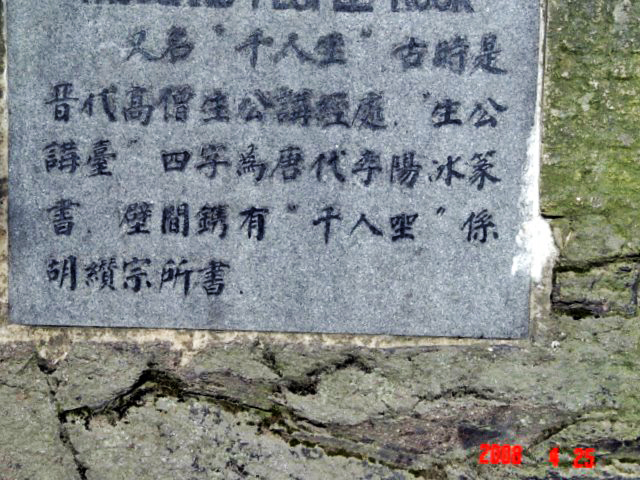 THOUSAND PEOPLE ROCK
又名“千人坐”古時是
晉代高僧生公講經處.“生公
講臺”四字為唐代李陽冰篆
書.壁間鐫有“千人坐”係
胡纘宗所書.
2008 4 25